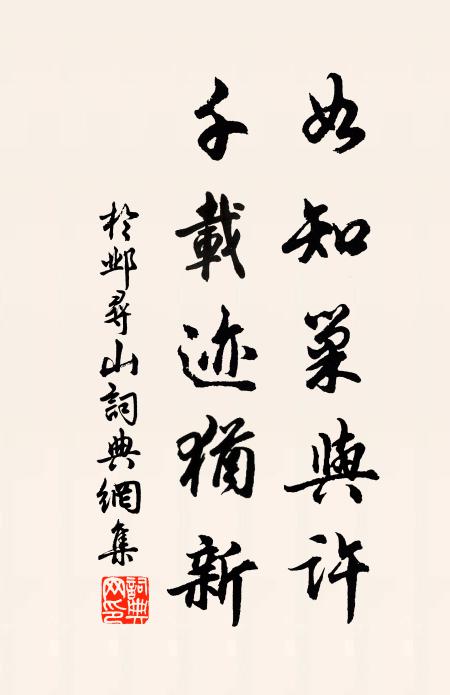 如知巢與許
千載迹猶新
於邺尋山詞典網集
詞典网印